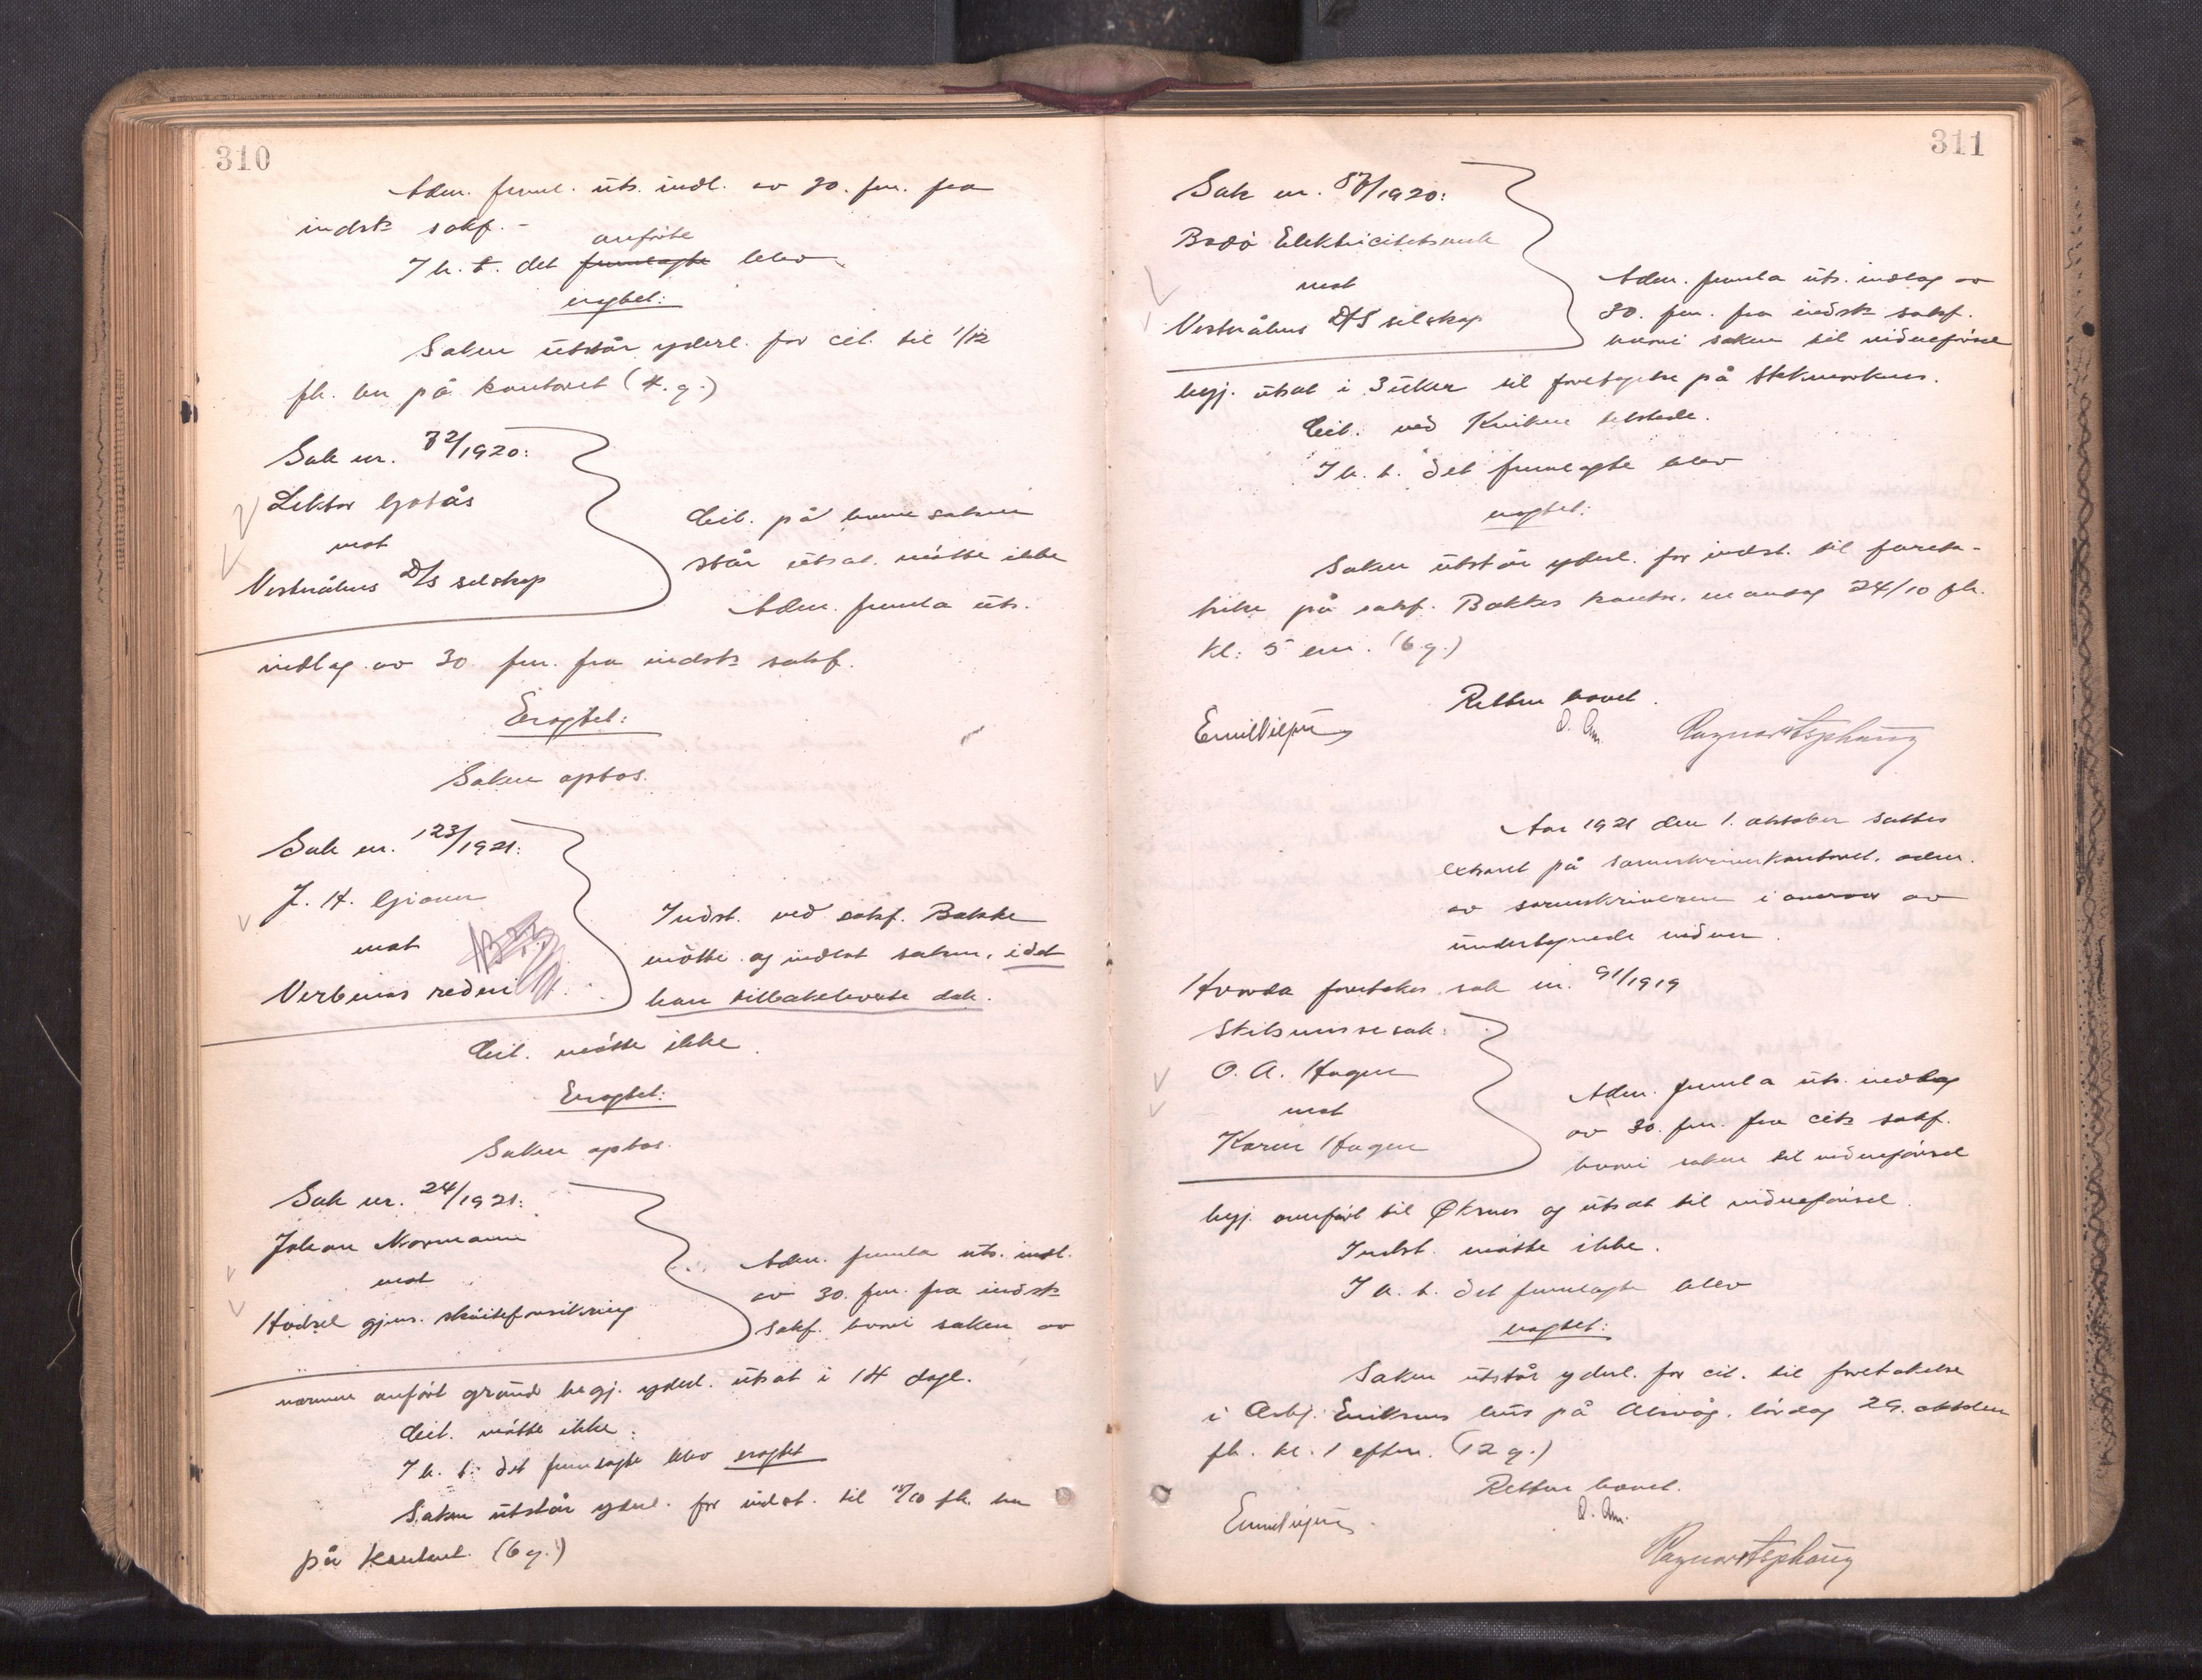 310
Adm. freml. uts. indl. av 30. fm. fra
indst's sakf. -
anførte
I h. t. det fremlagte blev
eragtet:
Saken utstår yderl. for cit. til 1/12
fk. her på kontoret (4. g.)
Sak nr. 32/1920:
Lektor Gotås
mot
Vesterålens D/S selskap
Cit. på hvem saken
står utsat. møtte ikke
Adm. fremla uts.
indlæg av 30. fm. fra indst's sakf.
Eragtet:
Saken optas.
Sak nr. 123/1921:
J. H. Giæver
mot
Verbenas rederi
Indst. ved sakf. Bakke
møtte og indlot saken, idet
han tilbakeleverte dok.
Cit. møtte ikke.
Eragtet:
Saken optas.
Sak nr. 24/1921:
Johan Normann
mot
Hadsel gjens. skøiteforsikring
Adm. fremla uts. indl.
av 30. fm. fra indst's
sakf. hvori saken av
nærmere anført grund begj. yderl. utsat i 14 dage.
Cit. møtte ikke.
I h. t. det fremlagte blev eragtet
Saken utstår yderl. for indst. til 15/10 fk. her
på kontoret. (6 g.)
311
Sak nr. 87/1920:
Bodø Elektricitetsverk
mot
Vesterålens D/S selskap
Adm. fremla uts. indlæg av
30. fm. fra indst's sakf.
hvori saken til vidneførsel
begj. utsat i 3 uker til foretagelse på Stokmarknes.
Cit. ved Kviken tilstede.
I h. t. det fremlagte blev
eragtet:
Saken utstår yderl. for indst. til foretak-
kelse på sakf. Bakkes kontor. mandag 24/10 fk.
kl: 5 em. (6 g.)
Retten hævet.
O. Am.
Aar 1921 den 1. oktober sattes
extraret på sorenskriverkontoret, adm.
av sorenskriveren i nærvær av
undertegnede vidner.
Hvorda foretokes sak nr. 91/1919
Skilsmissesak:
O. A. Hagen
mot
Karen Hagen
Adm. fremla uts. indlæg
av 30. fm. fra cit's sakf.
hvori saken til vidneførsel
begj. overført til Øksnes og utsat til vidneførsel.
Indst. møtte ikke.
I h. t. det fremlagte blev
eragtet:
Saken utstår yderl. for cit. til foretakelse
i Asbj. Eriksens hus på Alsvåg. lørdag 29. oktober
fk. kl. 1 efterm. (12 g.)
Retten hævet.
O. Am.